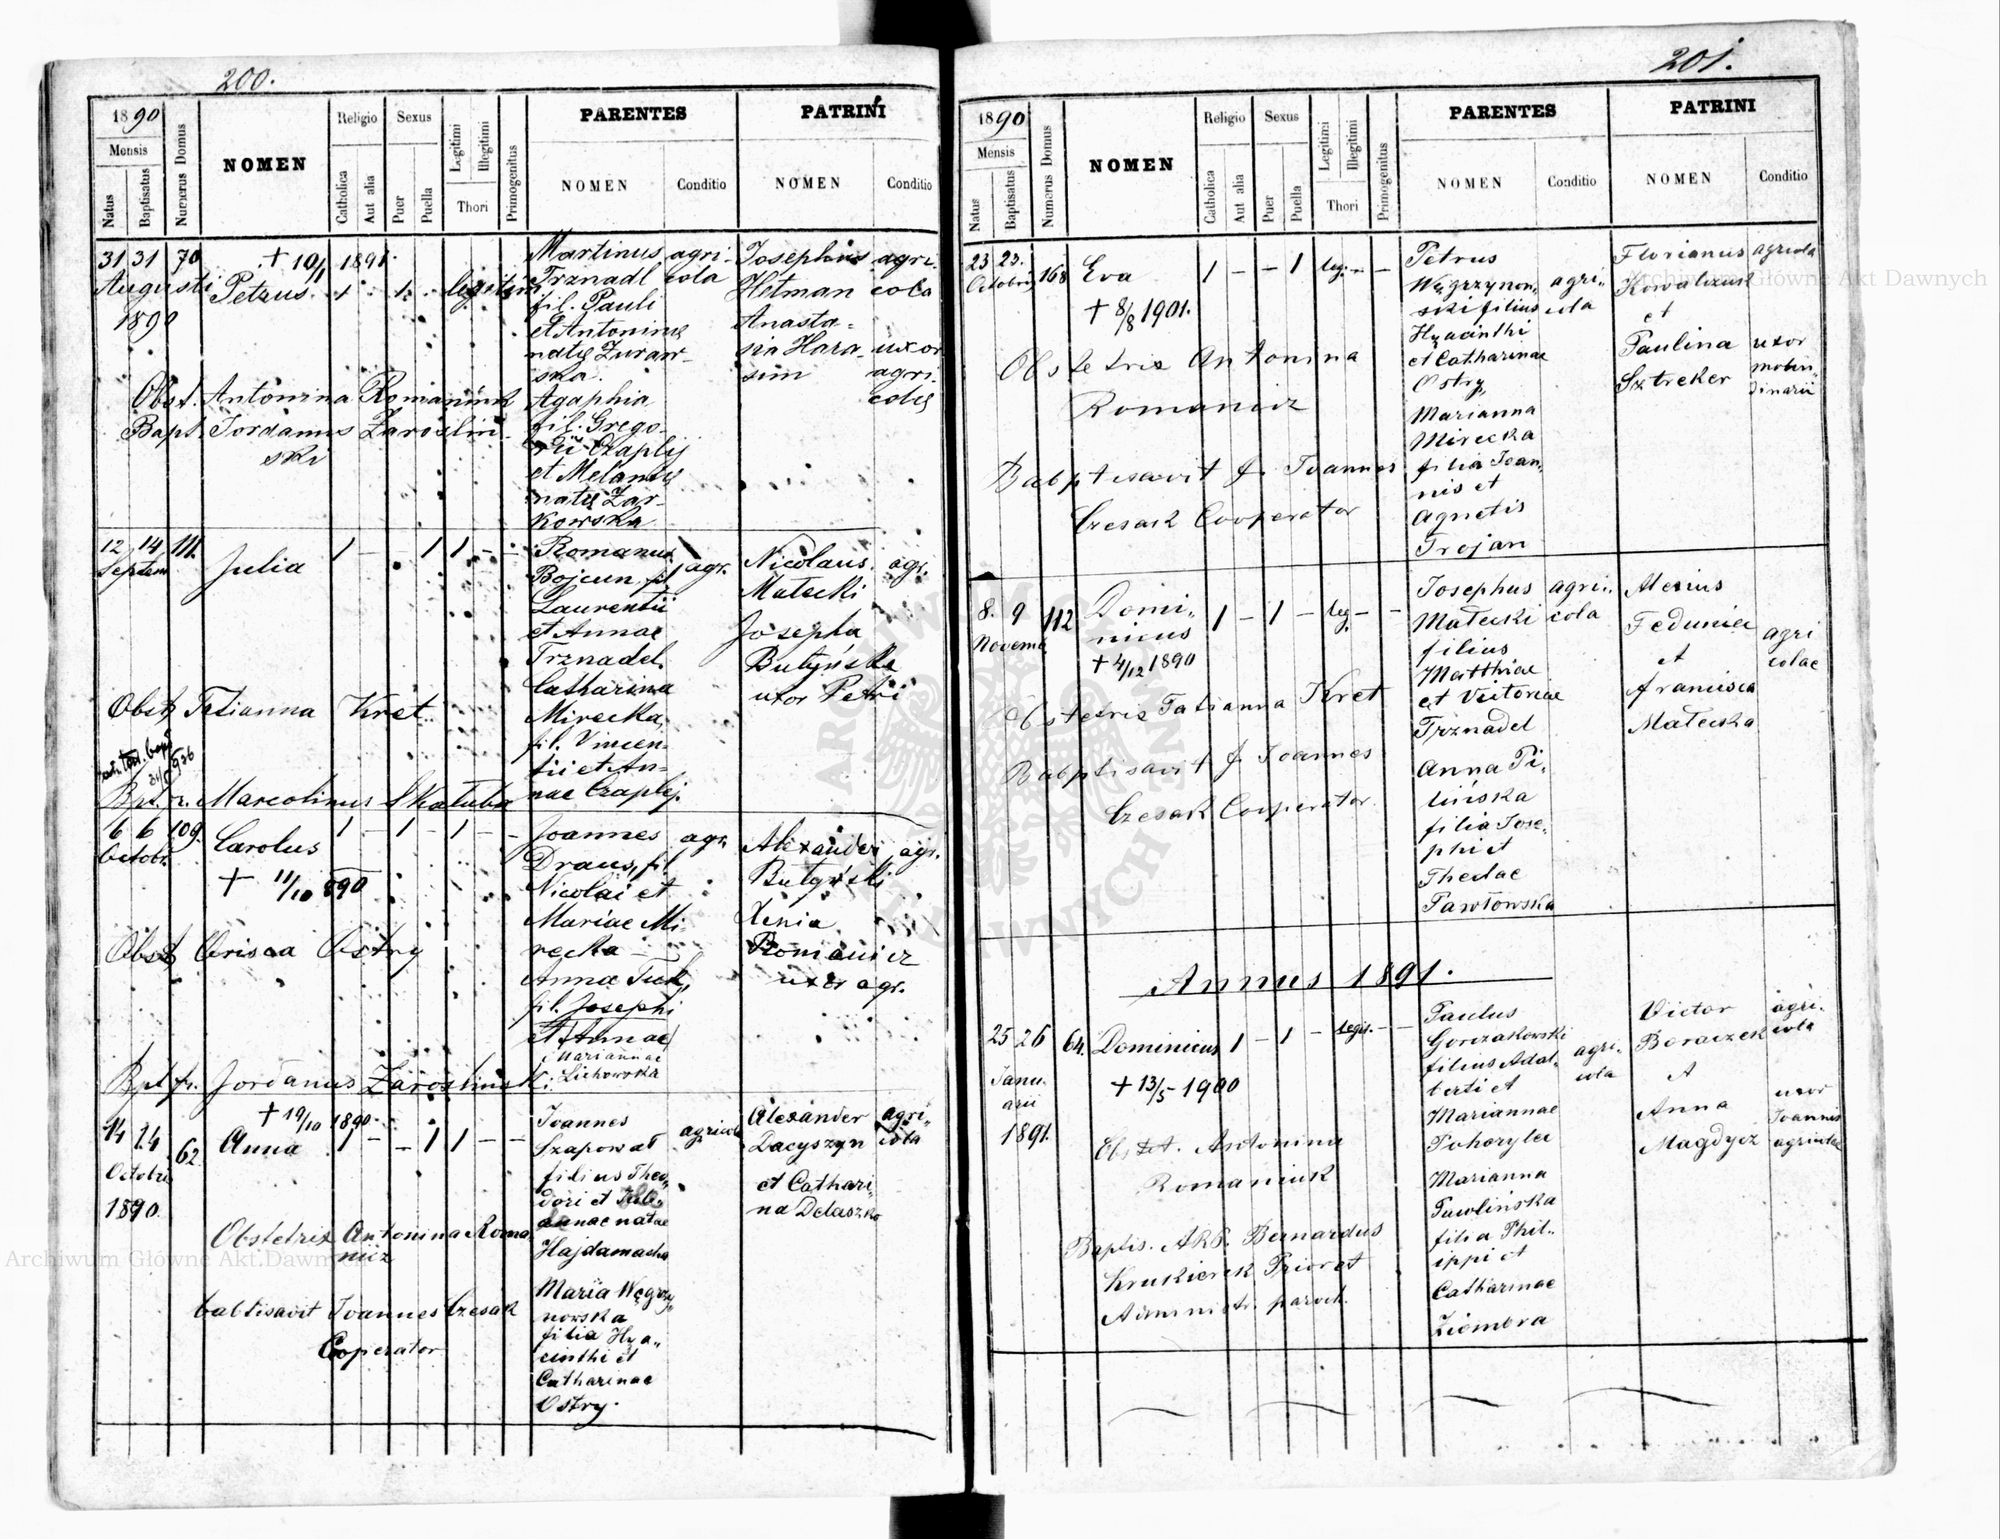 200.
1890
Mensis
Natus
Baptisatus
Numerus Domus
NOMEN
Religio
Catholica
Aut alia
Sexus
Puer
Puella
Legitimi
Illegitimi
Thori
Primogenitus
PARENTES
NOMEN
Conditio
PATRINI
NOMEN
Conditio
31 31 70
Augusti
1890
+ 10/1 1891.
Petrus 1 1 legitim
Obst. Antonina Romaniuk
Bapt. Jordanus Zaroslin-
ski
Martinus
Trznadl
fil. Pauli
et Antoninę
natę Żuraw-
ska.
Agaphia
fil. Grego-
rii Czaplij
et Melanię
natę Żar-
kowska
agri-
cola
Josephus
Hetman
Anasta-
sia Hara-
sim
agri-
cola
uxor
agri-
colę
12 14 111.
Septem
Julia 1 – – 1 1 – –
Obst. Tetianna Kret
31/5 936
Bpt. fr. Marcolinus Skatuba
Romanus
Bojcun fil
Laurentii
et Annae
Trznadel
Catharina
Mirecka
fil. Vincen-
tii et An-
nae Czaplij.
agr.
Nicolaus
Matecki
Josepha
Butyńska
uxor Petri
agr.
6 6 109.
Octobr.
Carolus 1 – 1 – 1 – –
+ 11/10 890
Obst Ostry
Bpt fr. Jordanus Zaroslinski
Joannes
Draus, fil
Nicolai et
Mariae Mi-
recka
Anna Tuck,
fil. Josephi
et Annae
Mariannae
Lichowska
agr.
Alexander
Butyński
Xenia
Romanicz
uxor agr.
agr.
14 14 62
Octobris
1890.
+ 19/10 1890.
Anna 1 – – 1 1 – –
Obstetrix Antonina Roma
nicz
babtisavit Joannes Czesak
Cooperator
Joannes
Szapowat
filius Theo-
dori et
annae natae
Hajdamacha
Maria Węgrzy-
nowska
filia Hya-
cinthi et
Catharinae
Ostry.
agricola
Alexander
Dacyszyn
et Cathari-
na Delaszko
agri-
cola
201.
1890
Mensis
Natus
Baptisatus
Numerus Domus
NOMEN
Religio
Catholica
Aut alia
Sexus
Puer
Puella
Legitimi
Illegitimi
Thori
Primogenitus
PARENTES
NOMEN
Conditio
PATRINI
NOMEN
Conditio
23 23. 168
Octobris
Eva 1 – – 1 leg. – –
+ 8/8 1901.
Obstetrix Antonina
Romanicz
Babptisavit f. Joannes
Czesak Cooperator
Petrus
Węgrzynow-
ski filius
Hyacinthi
et Catharinae
Ostry,
Marianna
Mirecka
filia Joan-
nis et
Agnetis
Trojan
agri-
cola
Florianus
Kowalczuk
et
Paulina
Sztreker
agricola
uxor
molin-
dinarii
8. 9 112
Novemb
Domi-
nicus 1 – 1 – leg. – –
+ 4/12 1890
Obstetrix Tatianna Kret
Babptisavit f Joannes
Czesak Cooperator
Josephus
Matecki
filius
Matthiae
et Victoriae
Trznadel
Anna Pi-
lińska
filia Jose-
phi et
Theclae
Pawłowska
agri-
cola
Alexius
Fedunicz
et
Francisca
Matecka
agri
colae
Annus 1891.
25 26 64.
Janu-
arii
1891.
Dominicus 1 – 1 – legit. – –
+ 13/5 1900
Obstet. Antonina
Romaniuk
Baptis. ARP. Bernardus
Krukierek Prior et
Administr. paroch.
Paulus
Gorczakowski
filius Adal-
berti et
Mariannae
Pohoryles
Marianna
Pawlińska
filia Phil-
ippi et
Catharinae
Ziembra
agri-
cola
Victor
Boraczek
et
Anna
Magdycz
agri-
cola
uxor
Joannis
agricolae
Archiwum Główne Akt Dawnych
Archiwum Główne Akt Dawnych